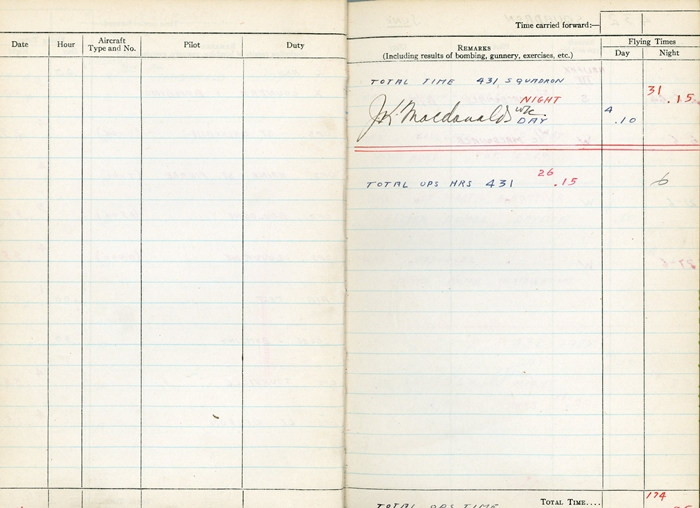 Date Hour Aircraft Type and No. Pilot Duty
Time carried forward:—
REMARKS
(Including results of bombing, gunnery, exercises, etc.)
Flying Times
Day Night
TOTAL TIME 431 SQUADRON
NIGHT 31 .15
J.K. Macdonald W/C
DAY 4 .10
TOTAL OPS HRS 431 26 .15 6
TOTAL OPS TIME
TOTAL TIME.... 174